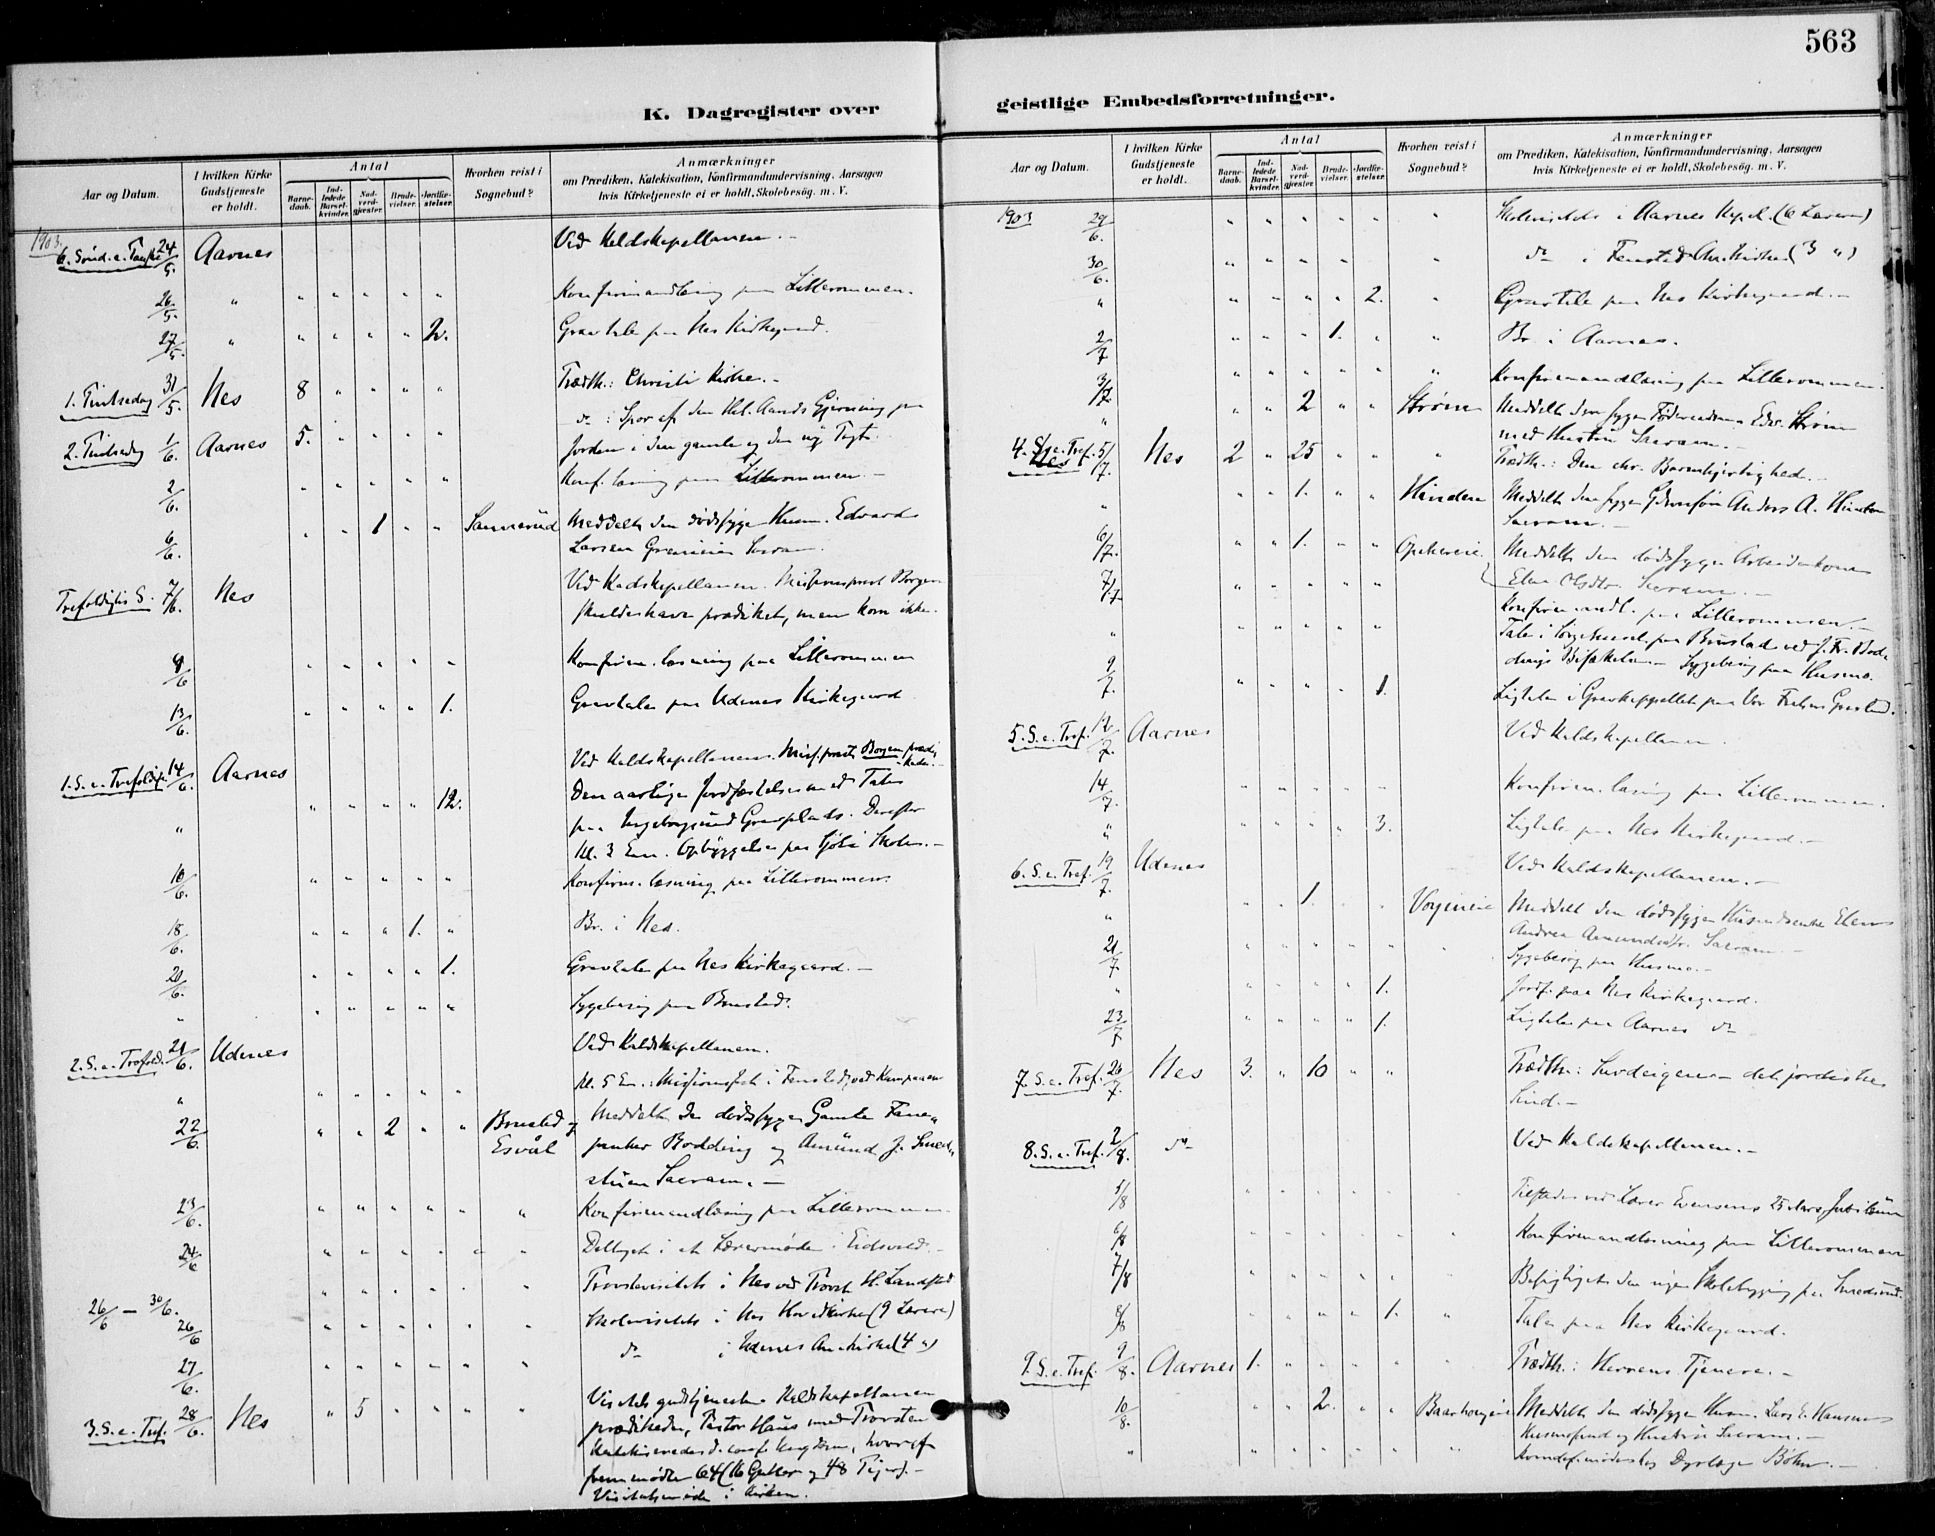 563
K. Dagregister over
geistlige Embedsforretninger.
Aar og Datum.
I hvilken Kirke Gudstjeneste er holdt.
Antal
Barnedaab.
Indledede Barselkvinder.
Nadverdgjester.
Brudevielser.
Jordfæstelser.
Hvorhen reist i Sognebud?
Anmærkninger
om Prædiken, Katekisation, Konfirmandundervisning, Aarsagen
hvis Kirketjeneste ei er holdt, Skolebesøg. m. V.
1903.
6. Sønd. e. Paaske 24/5. Aarnes Ved Kaldskapellanen.
26/5. " " " " " " Konfirmandlæsning paa Lillerommen.
27/5. " " " " " 2. Gravtale paa Nes Kirkegaard.
1. Pintsedag 31/5. Nes 8 " " " " Prædk.: Christi Kirke.
2. Pintsedag 1/6. Aarnes 5. " " " " do : Spor af den Hel. Aands Gjerning paa
Jorden i den gamle og den ny Pagt.
2/6. " " " " " Konf. læsning paa Lillerommen.
6/6. " " 1 " " Sannerud Meddelt den dødssyge Husm. Edvard
Larsen Sacram.
Trefoldighs S. 7/6. Nes Ved Kaldskapellanen. Missionsprest Borgen
skulde have prædiket, men kom ikke.
9/6 " " " " " Konfirm. læsning paa Lillerommen
13/6. " " " " 1. Gravtale paa Udenes Kirkegaard
1. S. e. Trefoldigh. 14/6. Aarnes Ved Kaldskapellanen. Miss.prest Borgen prædikede.
" " " " " 12. Den aarlige Jordfæstelse med Tale
paa Ingeborgrud Gravplads. Derefter
Kl. 3 Em. Opbyggelse paa Skole.
16/6. " " " " " Konfirm. læsning paa Lillerommen
18/6. " " " 1. " Br. i Nes.
20/6. " " " " 1. Gravtale paa Nes Kirkegaard.
" " " " " " Sygebesøg paa Brustad.
2. S. e. Trefold. 21/6. Udenes Ved Kaldskapellanen.
" " " " " " Kl. 5 Em.: Missionsfest i Fenstad, ved Kapellanen
22/6. " " 2 " " Brustad og Esvål Meddelt den dødssyge Gamle
Bodding og Amund J. Smed-
stuen Sacram.
23/6. " " " " " " Konfirmandlæsning paa Lillerommen
24/6 " " " " " " Deltaget i et Lærermøde i Eidsvold.
26/6 — 30/6. " " " " " " Provstevisitats i Nes ved Provst H. Landstad
26/6 " " " " " " Skolevisitats i Nes Hovedkirke (9 Lærere)
27/6. " " " " " " do i Udenes An.kirke (4 ")
3. S. e. Tref. 28/6. Nes " 5 " " " Visitatsgudstjeneste. Kaldskapellanen
prædikede, Pastor Haus med Provsten
katekiserede d. conf. Ungdom, hvoraf
fremmødte 64 (16 Gutter og 48 Piger).
Visitatsmøde i Kirken.
1903 29/6. " " " " " " Skolevisitats i Aarnes Kapel. (6 Lærere)
30/6. " " " " " " do i Fenstad An.kirke (3 ")
" " " " " 2. " Gravtale paa Nes Kirkegaard.
2/7 " " " 1. " " Br. i Aarnes.
3/7. " " " " " " Konfirmandlæsning paa Lillerommen.
" " " 2 " " Strøm Meddelt den syge Føderaadsm. Edv. Strøm
med Hustru Sacram.
4. S. e. Tref. 5/7. Nes 2 " 25 " " " Prædk.: Den chr. Barmhjertighed.
" " " 1. " " Hinden Meddelt den syge Anders A. Hinden
Sacram.
6/7. " " 1. " " Meddelt den dødssyge Arbeiderkone
Elen Olsdtr. Sacram.
7/7. " " " " " Konfirmandl. paa Lillerommen.
" " " " " " Tale i Sørgehuset paa Brustad ved J. Fr. Bod-
dings Bisættelse. Sygebesøg paa Husmo.
9/7. " " " " 1. Ligtale i Gravkapellet paa Vor Frelsers Gravlund.
5. S. e. Tref. 12/7. Aarnes Ved Kaldskapellanen.
14/7. " " " " " Konfirm. læsning paa Lillerommen.
" " " " " 3. Ligtale paa Nes Kirkegaard.
6. S. e. Tref. 19/7. Udenes Ved Kaldskapellanen.
" " " 1. " " Meddelt den dødssyge Husmandsenke Elen
Andrea Amundsdtr. Sacram.
21/7. " " " " " " Sygebesøg paa Husmo.
" " " " " 1. Jordf. paa Nes Kirkegaard.
23/7 " " " " 1. Ligtale paa Aarnes do
7. S. e. Tref. 26/7. Nes 3. " 10 " " Prædk.: det jordiske
Sind.
8. S. e. Tref. 2/8. do Ved Kaldskapellanen.
5/8 " " " " " " Tilstede ved Lærer Evensens 25 Aars Jubilæum
6/8 " " " " " " Konfirmandlæsning paa Lillerommen
7/8 " " " " " " Besigtiget den nye Skolebygning paa
8/8 " " " " 1. " Tale paa Nes Kirkegaard.
9. S. e. Tref. 9/8. Aarnes 1. " " " " " Prædk.: Herrens Tjenere.
10/8. " " 2. " " Meddelt den dødssyge Husm. Lars E. Hansen
og Hustru Sacram.
" " " " " " " hos Dyrlæge Bøhn.